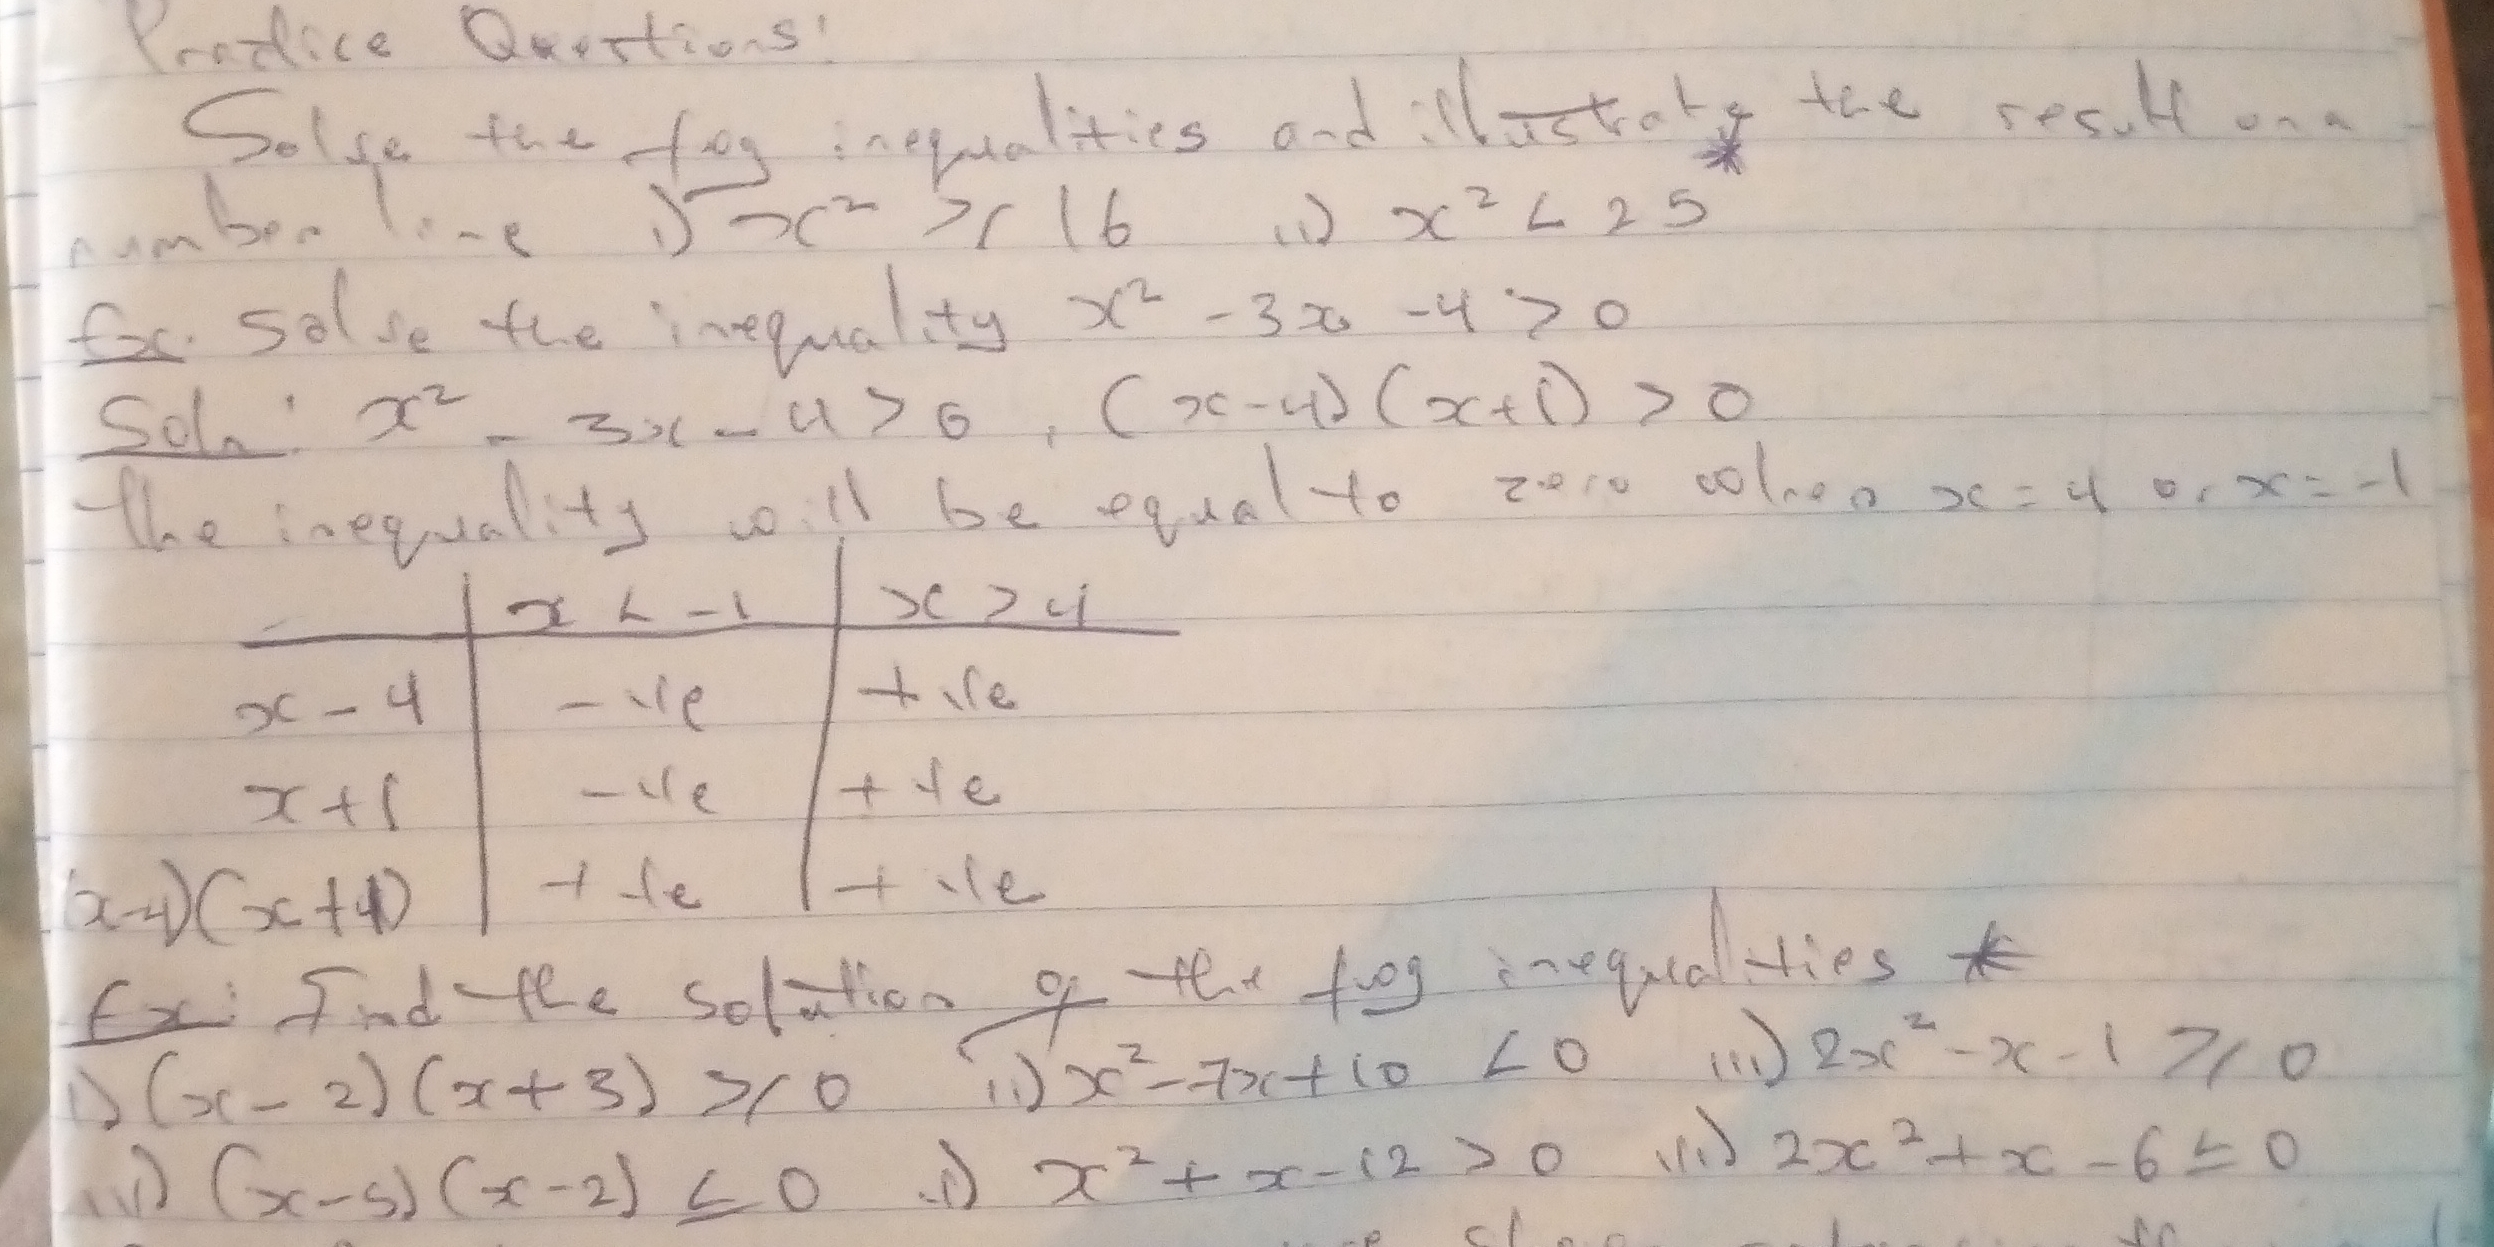 Practice Questions:
Solve the fog inequalities and illustrate the result on a
number line i) x² ≥ 16 ii) x² < 25
Ex: Solve the inequality x² - 3x - 4 > 0
Soln: x² - 3x - 4 > 0, (x-4)(x+1) > 0
The inequality will be equal to zero when x = 4 or x = -1
x < -1 x > 4
x - 4 -ve +ve
x + 1 -ve +ve
(x-4)(x+1) +ve +ve
Ex: Find the solution of the fog inequalities *
i) (x - 2)(x + 3) ≥ 0 ii) x² - 7x + 10 < 0 iii) 2x² - x - 1 ≥ 0
(x-5)(x-2) ≤ 0 x² + x - 12 > 0 2x² + x - 6 ≤ 0